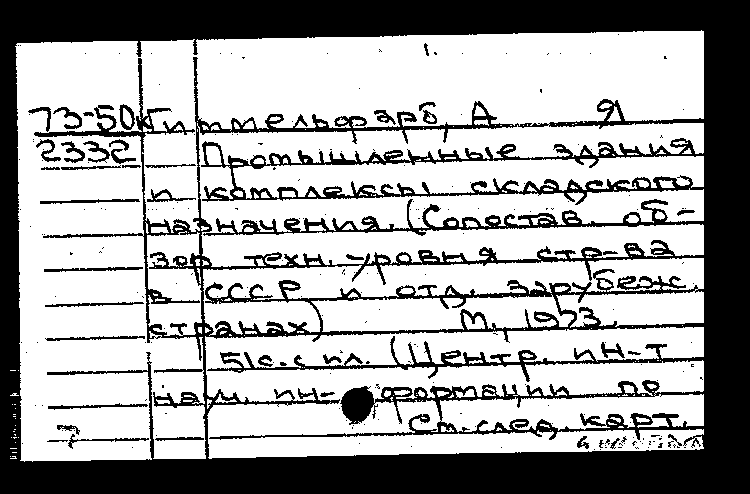 1.
73-50к Гиммельфарб, А Я
2332 Промышленные здания
и комплексы складского
назначения. (Сопостав. об-
зор техн. уровня стр-ва
в СССР и отд. зарубеж.
странах) М., 1973.
51 с. с ил. (Центр. ин-т
науч. ин- формации по
См. след. карт.
7